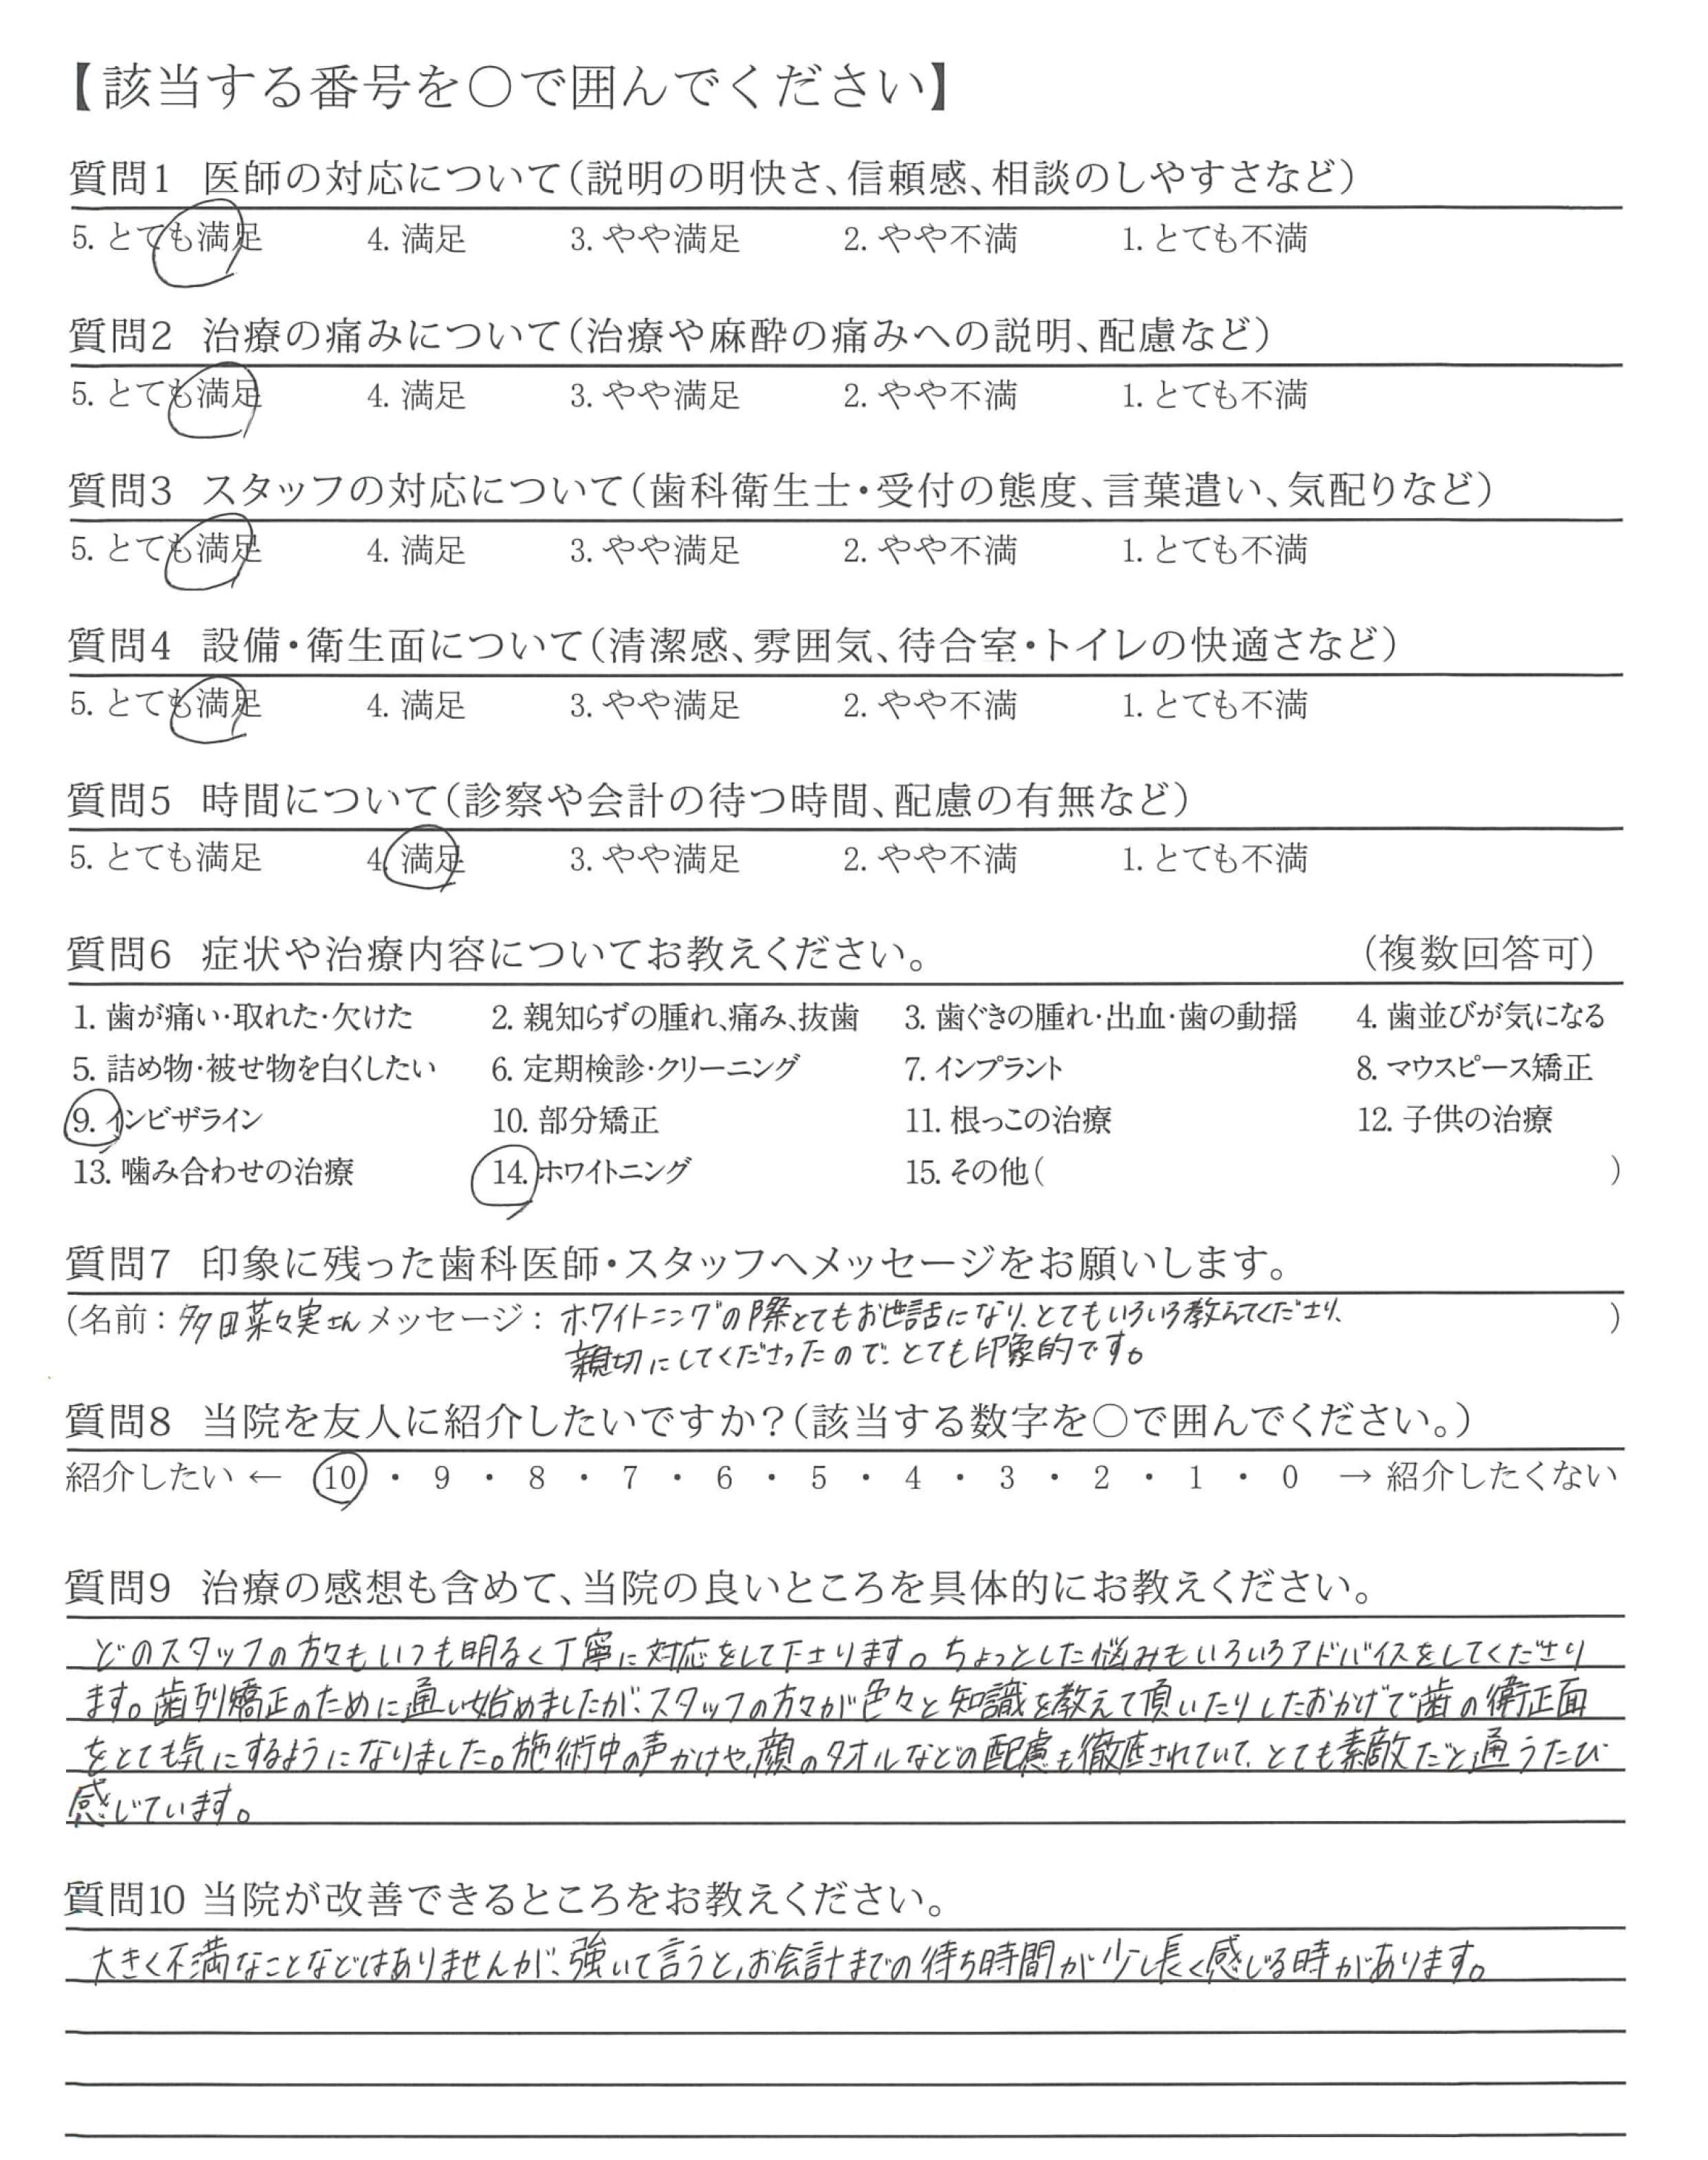 【該当する番号を○で囲んでください】
質問1 医師の対応について(説明の明快さ、信頼感、相談のしやすさなど)
5. とても満足 4. 満足 3. やや満足 2. やや不満 1. とても不満
質問2 治療の痛みについて(治療や麻酔の痛みへの説明、配慮など)
5. とても満足 4. 満足 3. やや満足 2. やや不満 1. とても不満
質問3 スタッフの対応について(歯科衛生士・受付の態度、言葉遣い、気配りなど)
5. とても満足 4. 満足 3. やや満足 2. やや不満 1. とても不満
質問4 設備・衛生面について(清潔感、雰囲気、待合室・トイレの快適さなど)
5. とても満足 4. 満足 3. やや満足 2. やや不満 1. とても不満
質問5 時間について(診察や会計の待つ時間、配慮の有無など)
5. とても満足 4. 満足 3. やや満足 2. やや不満 1. とても不満
質問6 症状や治療内容についてお教えください。 (複数回答可)
1. 歯が痛い・取れた・欠けた 2. 親知らずの腫れ、痛み、抜歯 3. 歯ぐきの腫れ・出血・歯の動揺 4. 歯並びが気になる
5. 詰め物・被せ物を白くしたい 6. 定期検診・クリーニング 7. インプラント 8. マウスピース矯正
9. インビザライン 10. 部分矯正 11. 根っこの治療 12. 子供の治療
13. 噛み合わせの治療 14. ホワイトニング 15. その他( )
質問7 印象に残った歯科医師・スタッフへメッセージをお願いします。
(名前:多田菜々実さん メッセージ:ホワイトニングの際とてもお世話になり、とてもいろいろ教えてくださり、 )
親切にしてくださったので、とても印象的です。
質問8 当院を友人に紹介したいですか?(該当する数字を○で囲んでください。)
紹介したい ← 10 ・ 9 ・ 8 ・ 7 ・ 6 ・ 5 ・ 4 ・ 3 ・ 2 ・ 1 ・ 0 → 紹介したくない
質問9 治療の感想も含めて、当院の良いところを具体的にお教えください。
どのスタッフの方々もいつも明るく丁寧に対応をして下さります。ちょっとした悩みもいろいろアドバイスをしてくださり
ます。歯列矯正のために通い始めましたが、スタッフの方々が色々と知識を教えて頂いたりしたおかげで歯の衛正面
をとても気にするようになりました。施術中の声かけや、顔のタオルなどの配慮も徹底されていて、とても素敵だと通うたび
感じています。
質問10 当院が改善できるところをお教えください。
大きく不満なことなどはありませんが、強いて言うと、お会計までの待ち時間が少し長く感じる時があります。